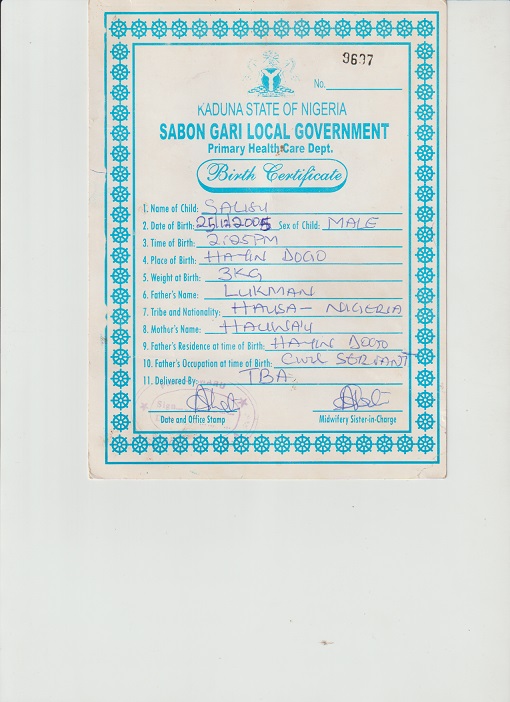 9697
No.
KADUNA STATE OF NIGERIA
SABON GARI LOCAL GOVERNMENT
Primary Health Care Dept.
Birth Certificate
1. Name of Child: SALISU
2. Date of Birth: 25/12/2005 Sex of Child: MALE
3. Time of Birth: 2:25PM
4. Place of Birth: HAYIN DOGO
5. Weight at Birth: 3KG
6. Father's Name: LUKMAN
7. Tribe and Nationality: HAUSA - NIGERIA
8. Mothur's Name: HAUWA'U
9. Father's Residence at time of Birth: HAYIN DOGO
10. Father's Occupation at time of Birth: CIVIL SERVANT
11. Delivered By: TBA
Date and Office Stamp Midwifery Sister-in-Charge